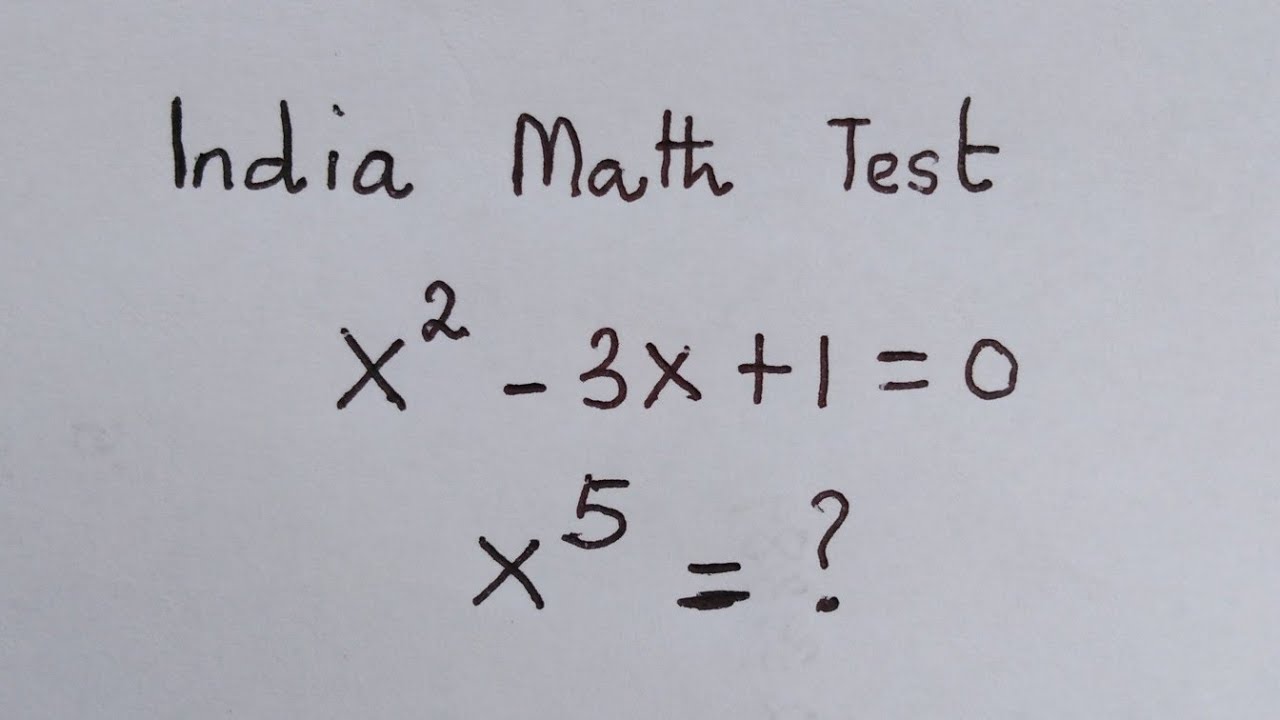 India Math Test
x² - 3x + 1 = 0
x⁵ = ?